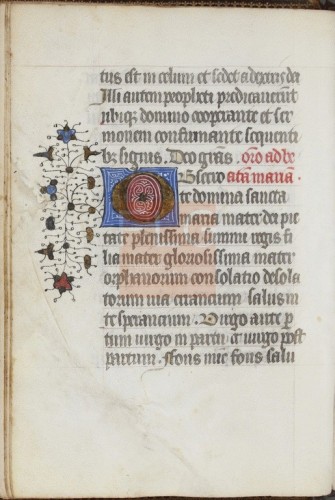 tus est in celum et sedet a dextris dei
Illi autem prophete predicauerunt
ubique domino cooperante et ser
monem confirmante sequenti
bz signis. Deo gras. oro ad be
Obsecro atam maria.
te domina sancta
maria mater dei pie
tate plenissima summe regis fi
lia mater gloriosissima mater
orphanorum consolatio desola
torum uia errancium salus in
te sperancium. Virgo ante p
tum uirgo in partu et uirgo post
partum. Fons mie fons salu